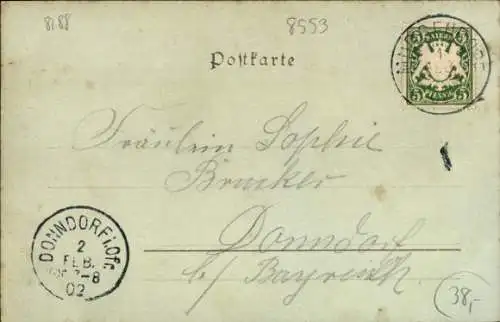 8188
8553
Postkarte
BAYERN
5 5
5 PFENNIG 5
1
Fräulein Sophie
Brucker
Donndorf
b/ Bayreuth
DONNDORF i. Ofr.
2
FEB.
7-8
02
38,-